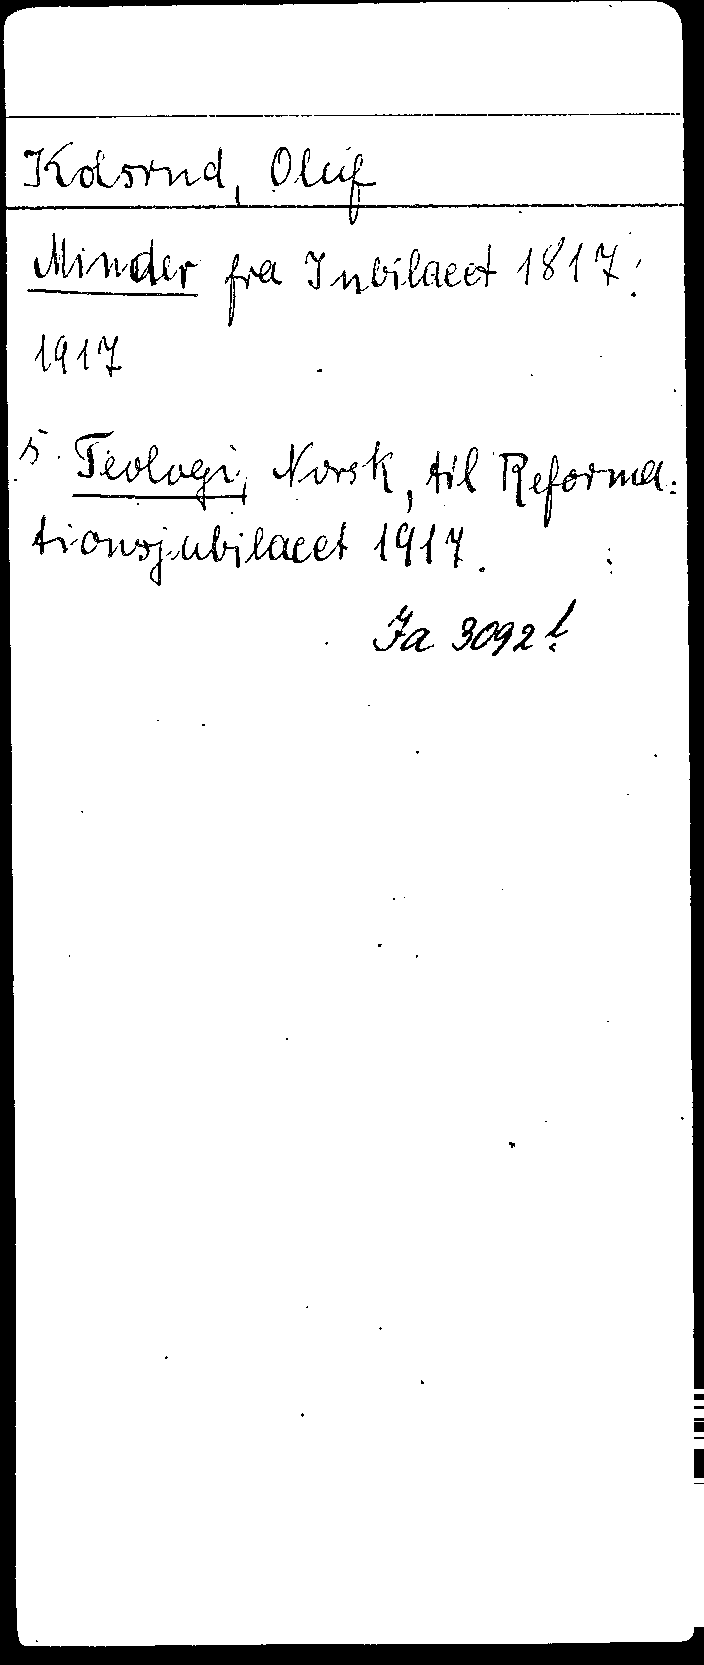 Kolsrud, Oluf
Minder fra Jubilaeet 1817.
1917
5. Teologi, Norsk, til Reforma-
tionsjubilaeet 1917.
Ja 3092 l